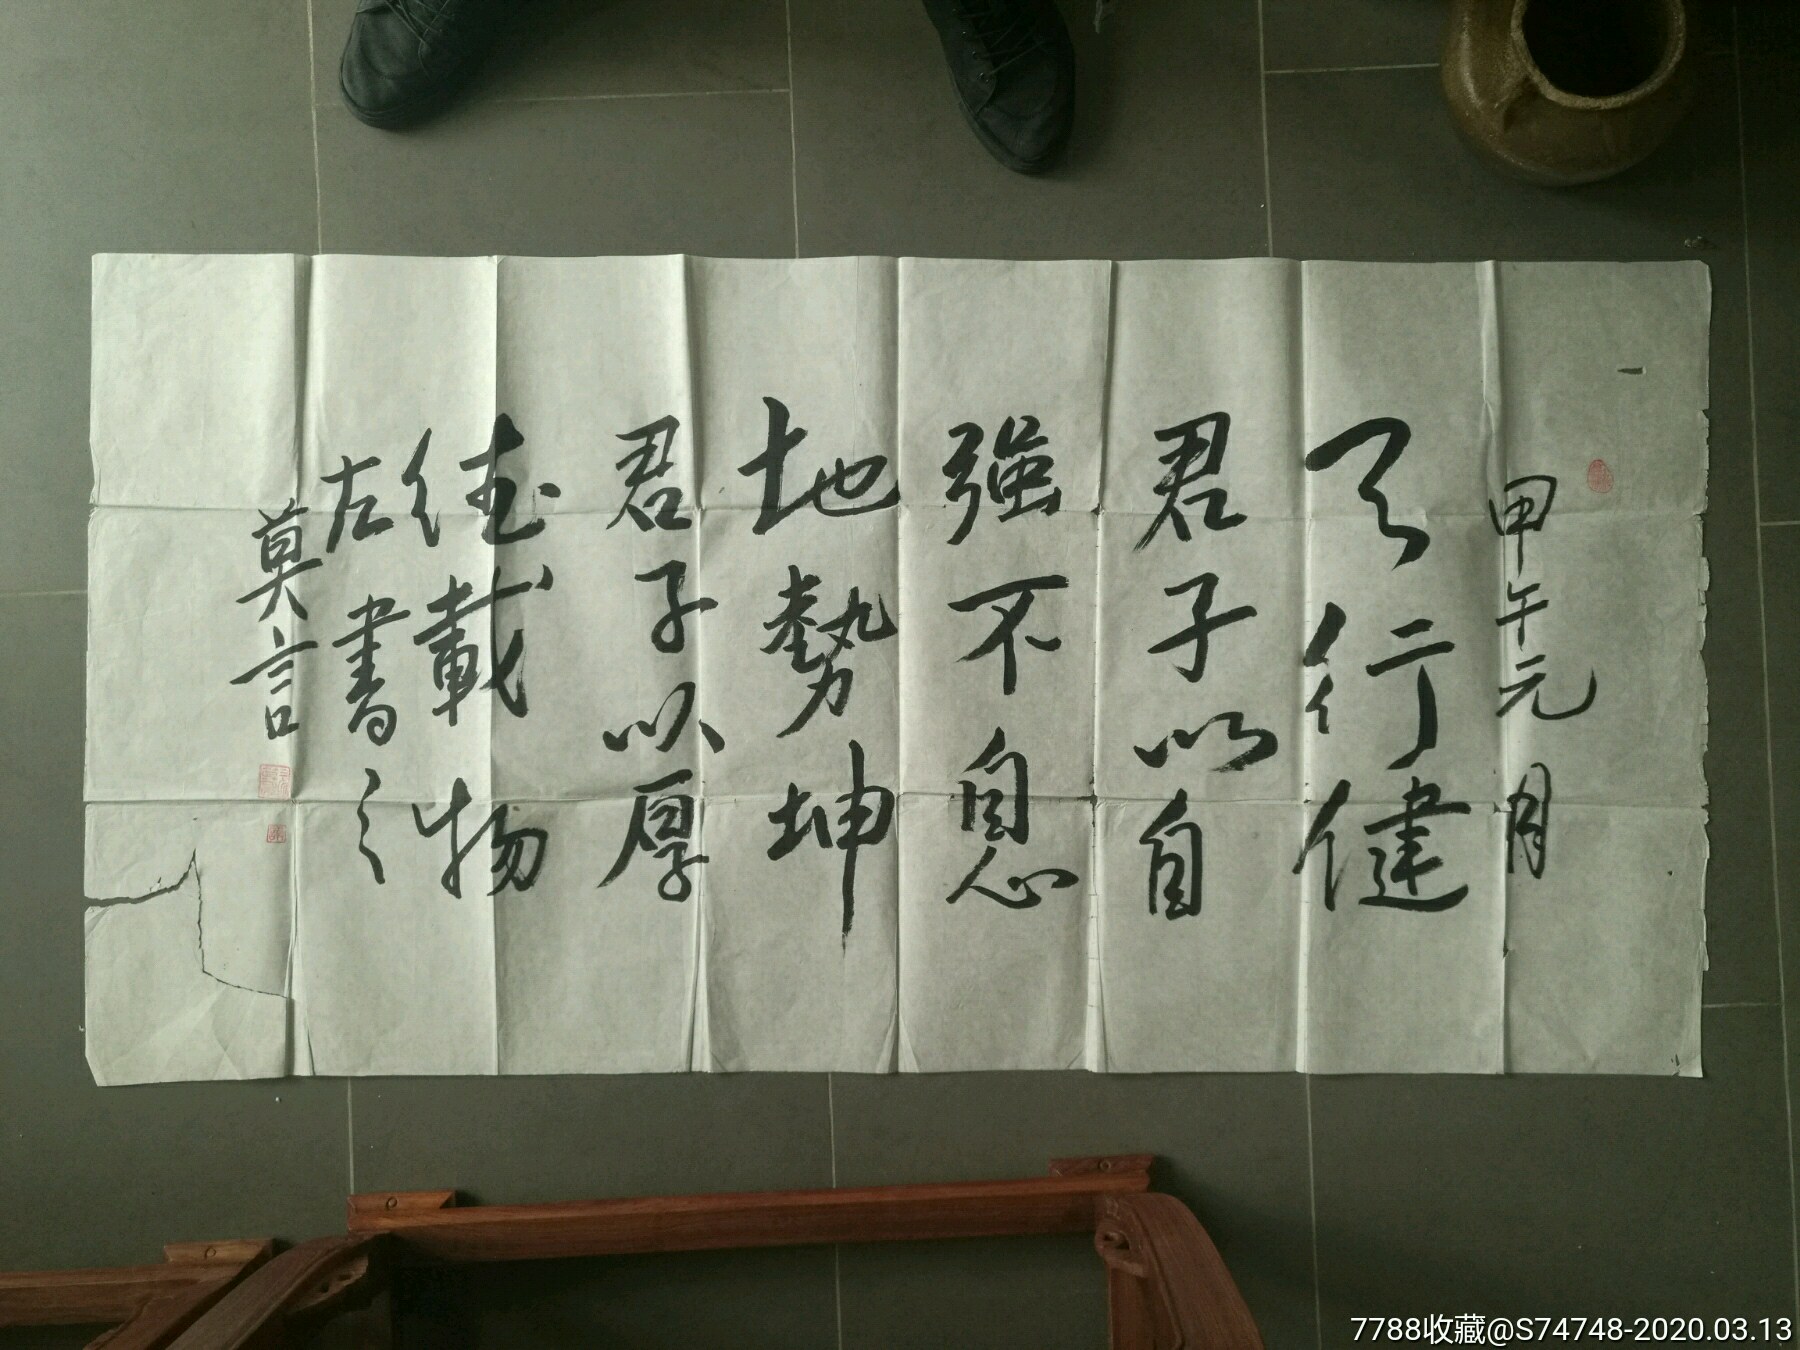 甲午元月
天行健
君子以自
強不息
地勢坤
君子以厚
德載物
左書之
莫言
7788收藏@S74748-2020.03.13